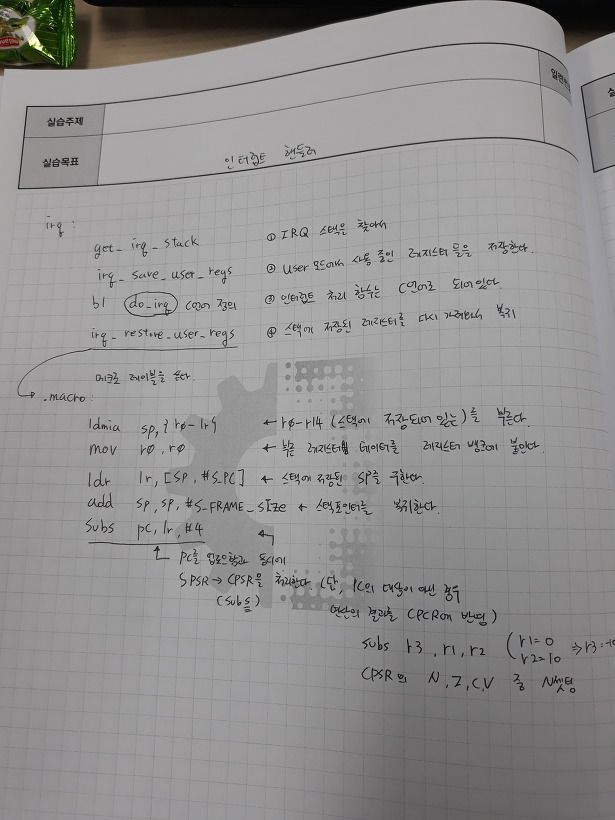 실습주제
일련번
실습목표
인터럽트 핸들러
irq :
get_irq_stack ① IRQ 스택을 찾아서
irq_save_user_regs ② User 모드에서 사용 중인 레지스터들을 저장한다.
bl do_irq C언어 정의 ③ 인터럽트 처리 함수는 C언어로 되어있다.
irq_restore_user_regs ④ 스택에 저장된 레지스터를 다시 복귀
레이블을 쓴다.
.macro :
ldmia sp, {r0-lr} ← r0-r14 (스택에 저장되어 있는)를 부른다.
mov r0, r0 ← 부른 데이터를 레지스터 뱅크에 붙인다.
ldr lr, [sp, #S_PC] ← 스택에 저장된 SP를 구한다.
add sp, sp, #S_FRAME_SIZE ← 스택포인터를 복귀한다.
subs pc, lr, #4
pc를 업로드함과 동시에
SPSR → CPSR을 처리한다. (단, 대상이 아닌 경우
(subs) 연산의 결과를 CPCR에 반영)
subs r3, r1, r2 (r1=0
r2=10 ⇒ r3=-10
CPSR의 N, Z, C, V 중 N셋팅